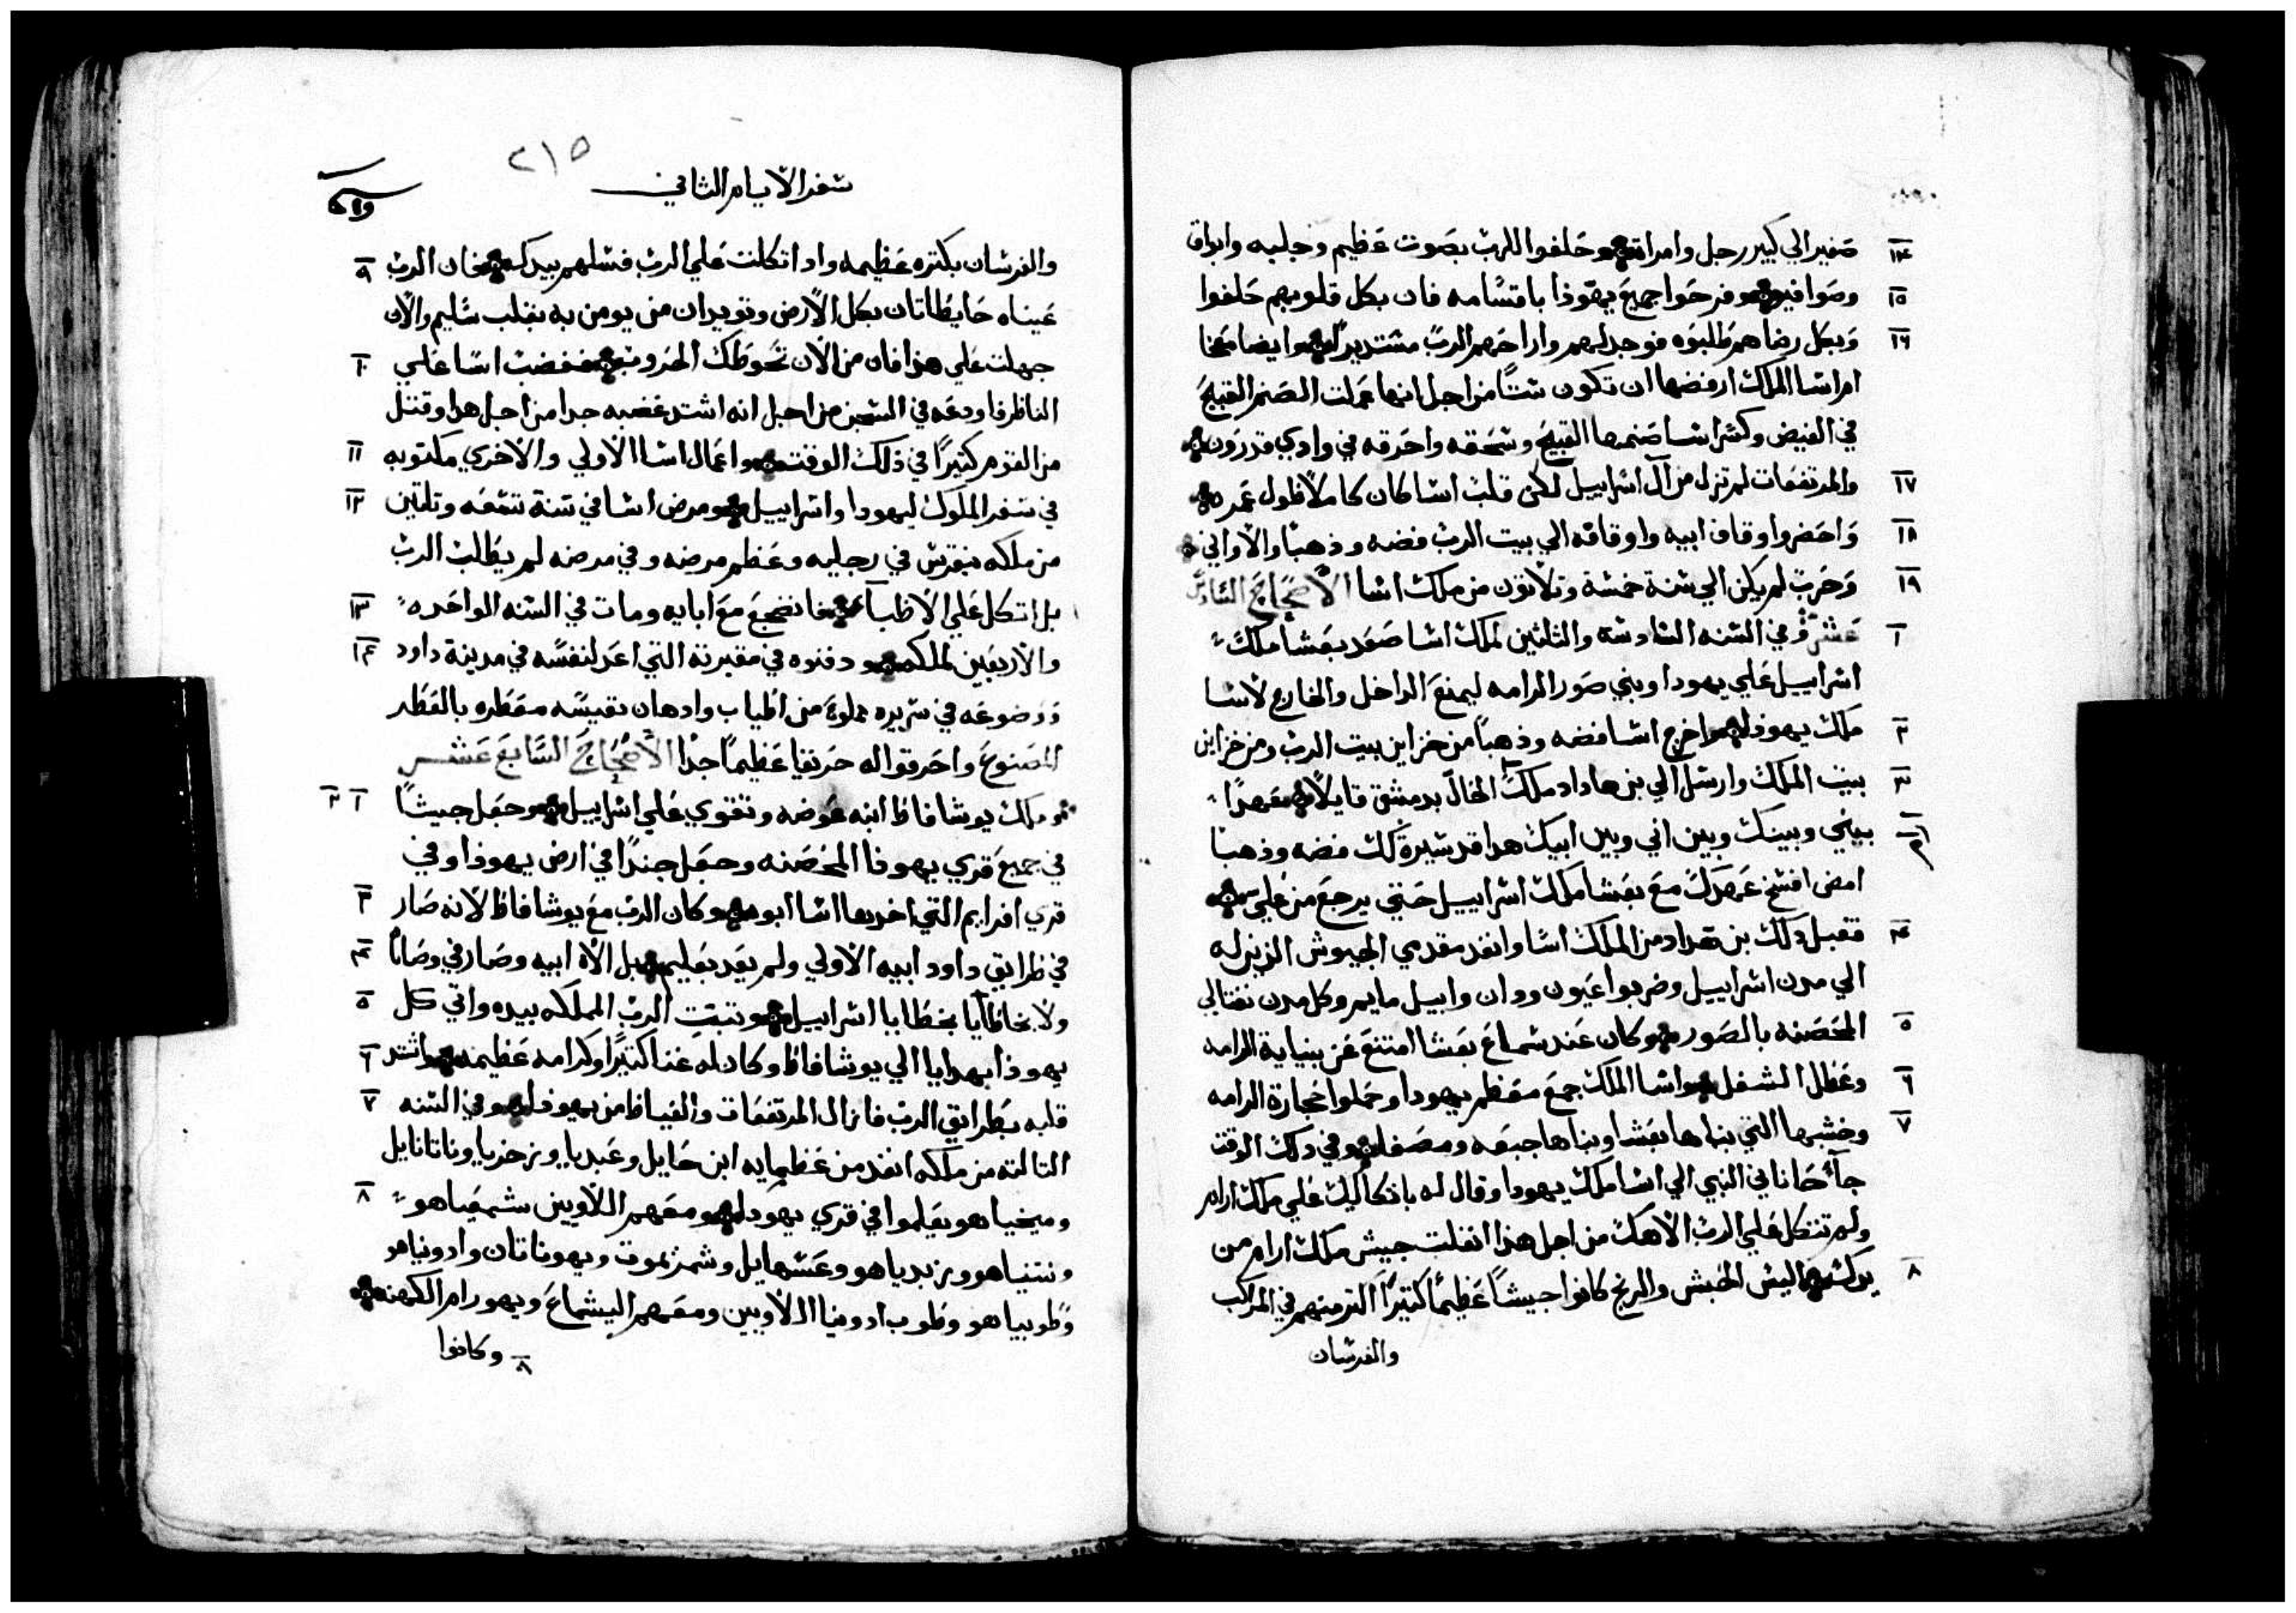 صغير الي كبير رجل وامراة وحلفوا للرب بصوت عظيم وجلبه وابواق ١٤
وصوافير وفرحوا جميع يهوذا باقسامه فان بكل قلوبهم حلفوا ١٥
وبكل رضاهم طلبوه فوجد لهم واراحهم الرب مستديرا وايضا معخا ١٦
ام اسا الملك ارفضها ان تكون ستا من اجل انها عملت الصنم القبيح
في الغيض وكسر اسا صنمها القبيح وسحقه واحرقه في وادي قدرون
والمرتفعات لم تزل من آل اسراييل لكن قلب اسا كان كاملا طول عمره ١٧
واحضر اوقاف ابيه واوقافه الي بيت الرب فضه وذهبا والاواني ١٨
وحرب لم يكن الي سنة خمسة وتلاتون من ملك اسا الاصحاح السادس ١٩
عشر وفي السنه السادسة والثلثين لملك اسا صعد بعشا ملك ١
اسراييل علي يهودا وبني صور الرامه ليمنع الداخل والخارج لاسا
ملك يهوذا واخرج اسا فضه وذهبا من خزاين بيت الرب ومن خزاين ٢
بيت الملك وارسل الي بن هاداد ملك الخال بدمشق قايلا عهدا ٣
بيني وبينك وبين ابي وبين ابيك هوا قد سيرت لك فضه وذهبا
امض افسخ عهدك مع بعشا ملك اسراييل حتي يرجع من علي
فقبل ذلك بن هداد من الملك اسا وانفد مقدمي الجيوش الذين له ٤
الي مدن اسراييل وضربوا عيون ودان وابيل مايم وكل مدن نفتالي
المحصنه بالصور وكان عند سماع بعشا امتنع عن بنياية الرامه ٥
وعطل الشغل واسا الملك جمع معظم يهودا وحملوا حجارة الرامه ٦
وخشبها التي بناها بعشا وبناها جبعه ومصفا وفي ذلك الوقت ٧
جآ حاناني النبي الي اسا ملك يهودا وقال له باتكاليك علي ملك ارام
ولم تتكل علي الرب الاهك من اجل هذا انفلت جيش ملك ارام من
يدك اليس الحبش والريح كانوا جيشا عظيما كتيرا اكتر منهم في المراكب ٨
والفرسان
٢١٥
سفر الايام الثاني
والفرسان بكتره عظيمه واد اتكلت علي الرب فسلهم بيدك فان الرب ٩
عيناه حايطاتان بكل الارض وتويدان من يومن به بقلب سليم والان
جهلت علي هذا فان من الان تحوطك الحروب فغضب اسا علي ١٠
الناظر فاودعه في السجن من اجل انه اشتد غضبه جدا من اجل هدا وقتل
من القوم كتيرا في ذلك الوقت واعمال اسا الاولي والاخري مكتوبه ١١
في سفر الملوك ليهودا واسراييل ومرض اسا في سنة تسعه وتلتين ١٢
من ملكه بنقرس في رجليه وعظم مرضه وفي مرضه لم يطلب الرب
بل اتكل علي الاطبآ فانضجع مع ابايه ومات في السنه الواحده ١٣
والاربعين لملكه ودفنوه في مقبرته التي اعد لنفسه في مدينة داود ١٤
ووضوعه في سريره مملوة من اطياب وادهان نفيسه معطره بالعطر
المصنوع واحرقوا له حريقا عظيما جدا الاصحاح السابع عشر
وملك يوشافاظ ابنه عوضه وتقوي علي اسراييل وجعل جيشا ١ ٢
في جميع قري يهوذا المحصنه وجعل جندا في ارض يهوذا وفي
قري افرايم التي اخدها اسا ابوه وكان الرب مع يوشافاظ لانه صار ٣
في طرايق داود ابيه الاولي ولم يعد بعليم بل الاه ابيه وصار في وصايا ٤
ولا بخاطايا بخطايا اسراييل وتبت الرب المملكه بيده واتي كل ٥
يهوذا بهدايا الي يوشافاظ وكان له غنا كتيرا وكرامه عظيمه واشتد ٦
قلبه بطرايق الرب فازال المرتفعات والغياظ من يهوذا وفي السنه ٧
التالته من ملكه انفد من عظمايه ابن حايل وعبديا وزخريا وناتانايل
وميخياهو يعلموا في قري يهودا ومعهم اللاويين شمعياهو ٨
ونتنياهو وزبدياهو وعسهايل وشمزيموت ويهوناتان وادونياهو
وطوبياهو وطوب ادونيا اللاويين ومعهم اليشماع ويهورام الكهنه
٨ وكانوا